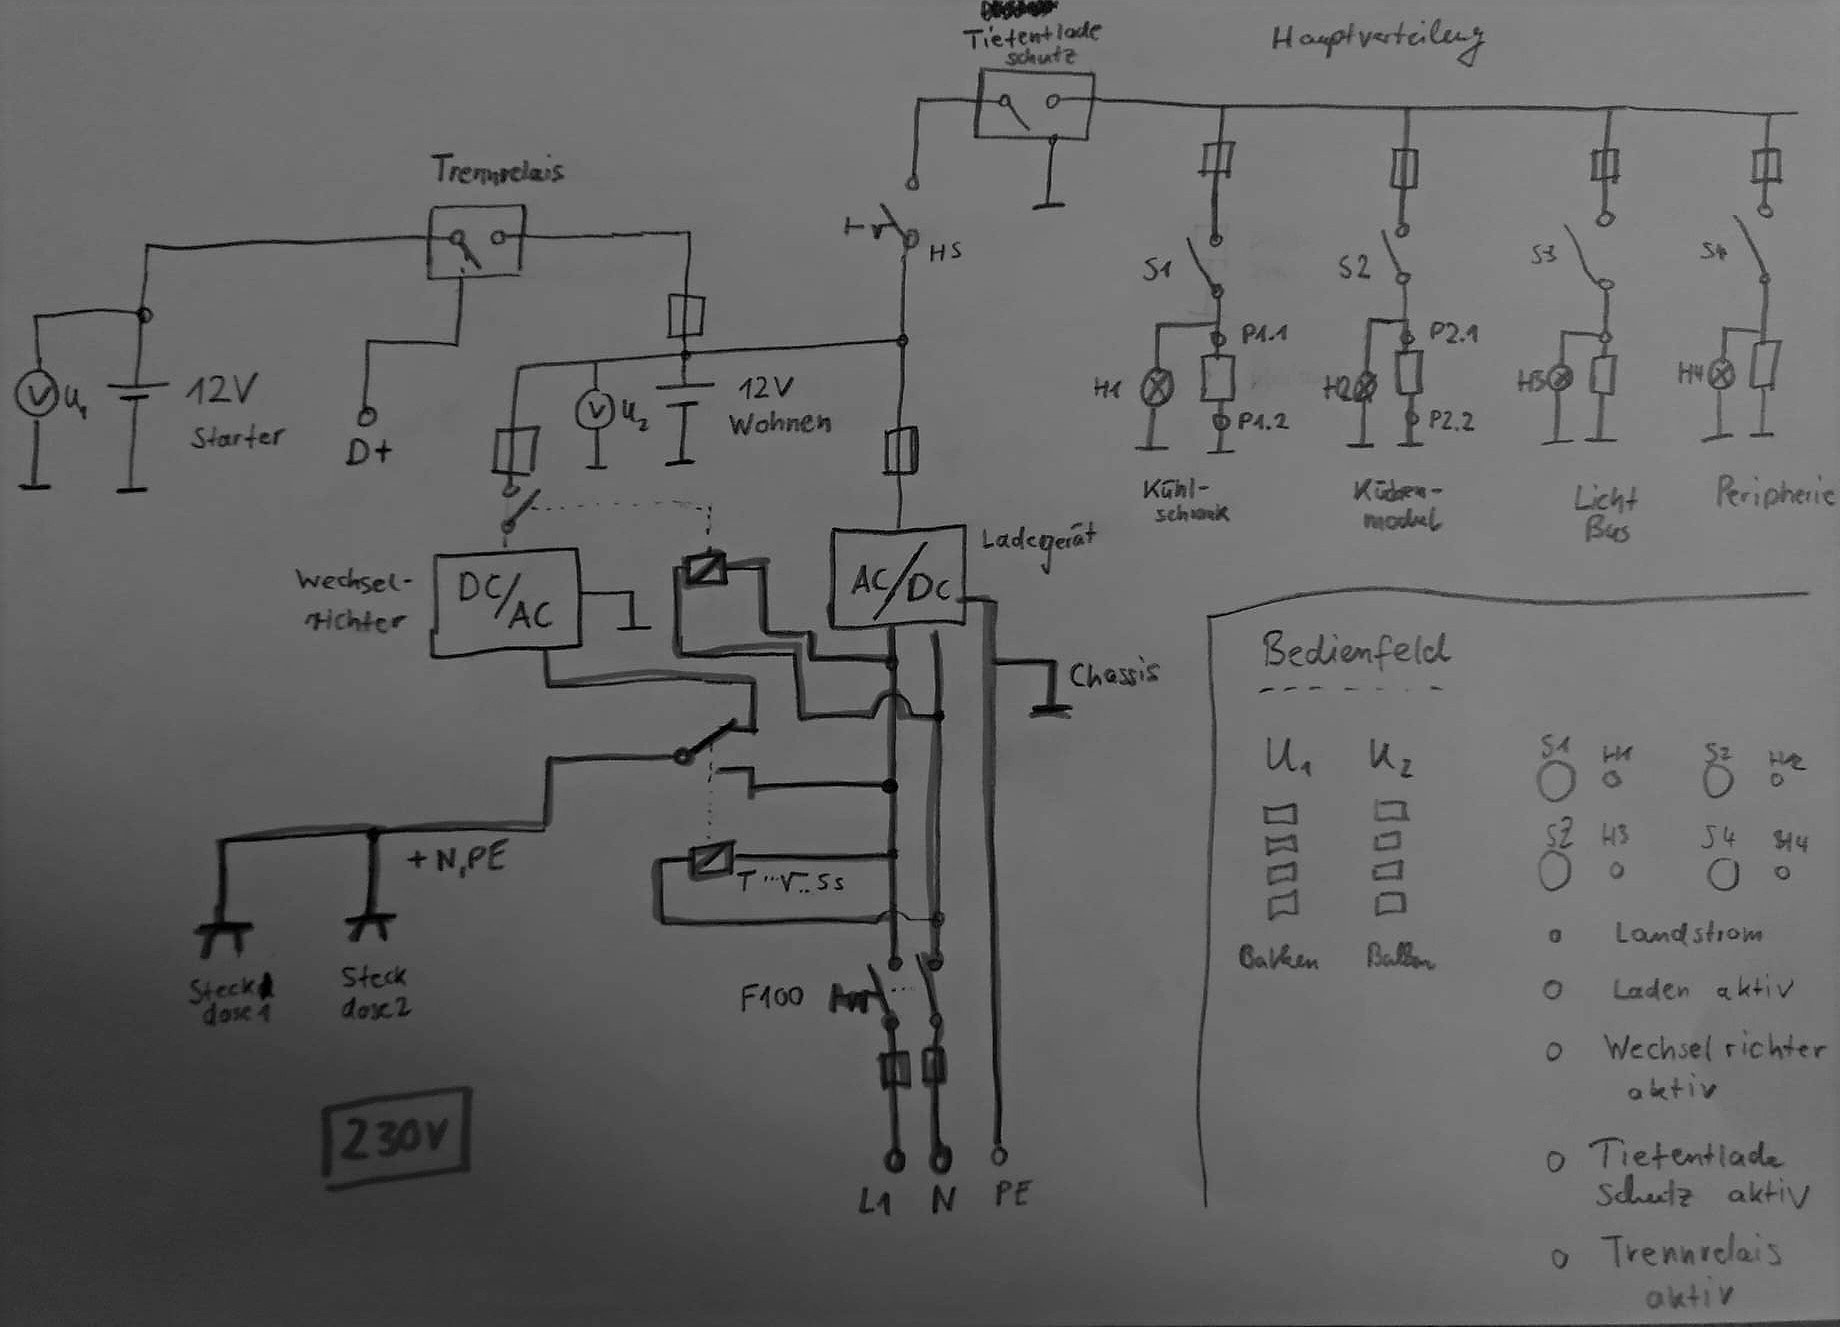 Tiefentlade
schutz
Hauptverteilung
Trennrelais
HS
S1
S2
S3
S4
P1.1
P2.1
U1
12V
Starter
D+
U2
12V
Wohnen
H1
H2
H3
H4
P1.2
P2.2
Kühl-
schrank
Küchen-
modul
Licht
Bus
Peripherie
Wechsel-
richter
DC/AC
AC/DC
Ladegerät
Chassis
Bedienfeld
U1
U2
S1
H1
S2
H2
S2
H3
S4
H4
Balken
Balken
+N,PE
5s
Steck
dose 1
Steck
dose 2
F100
Landstrom
Laden aktiv
Wechselrichter
aktiv
Tiefentlade
Schutz aktiv
Trennrelais
aktiv
230V
L1
N
PE